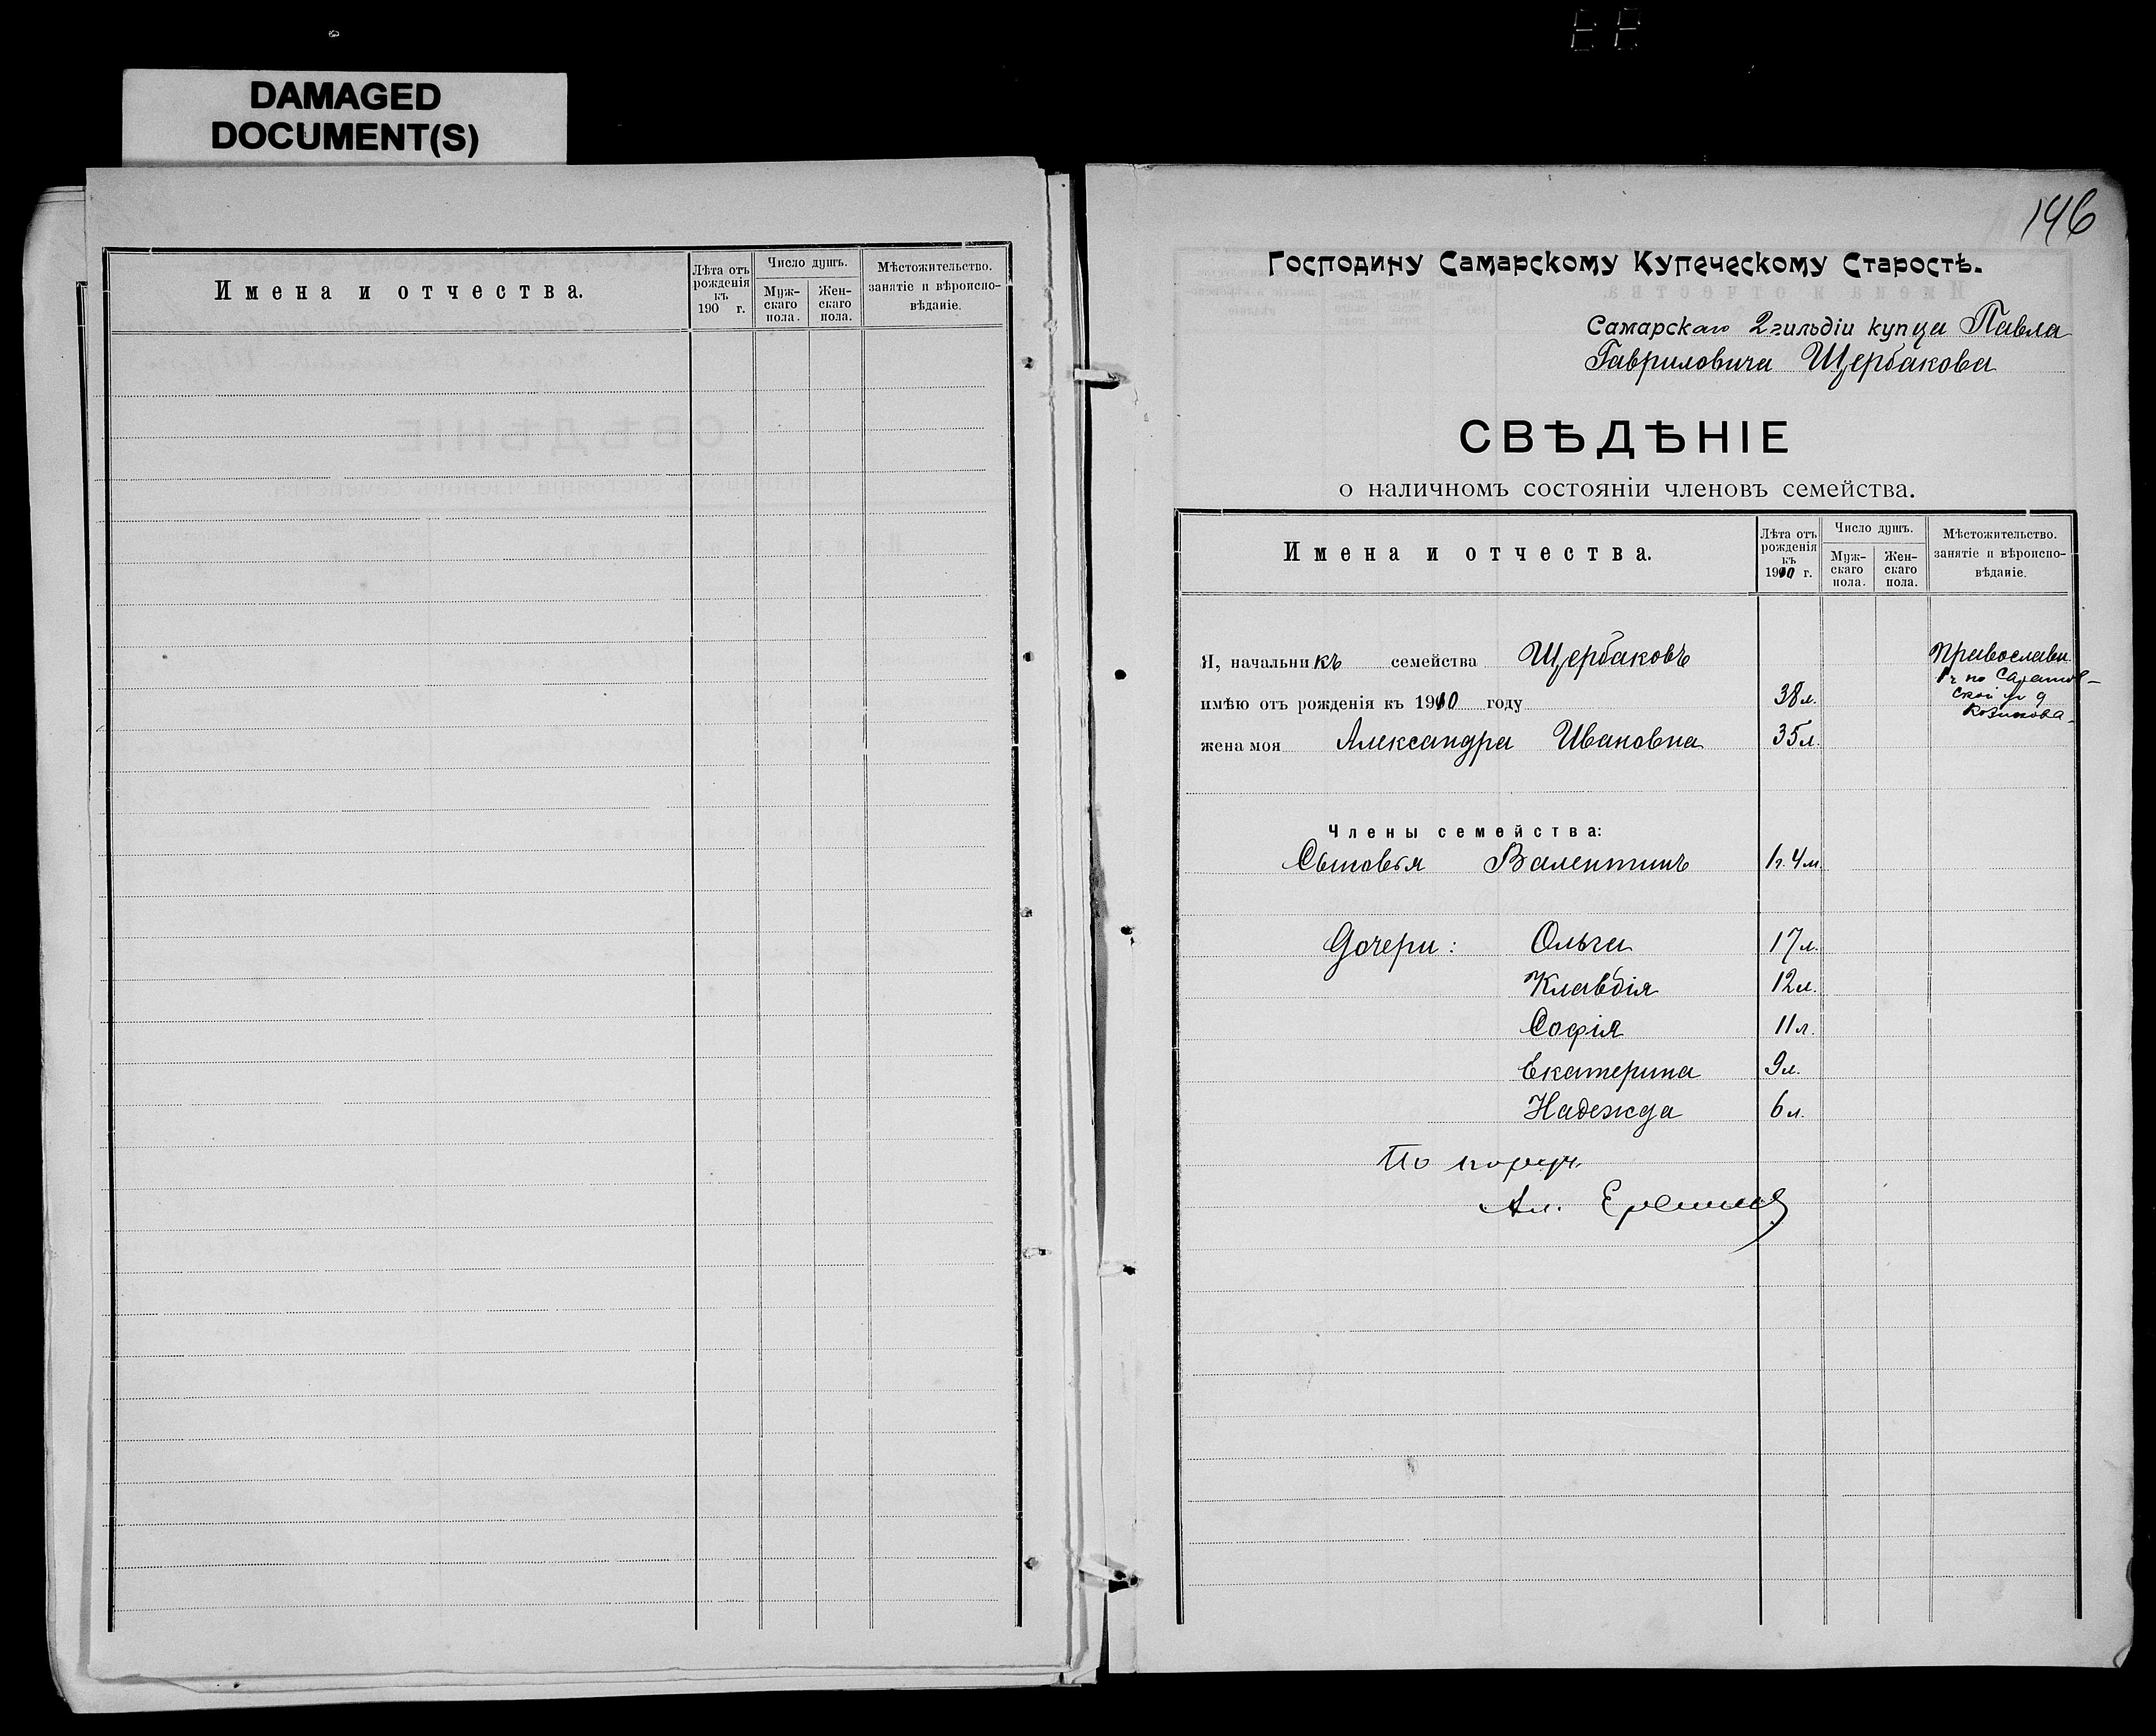 DAMAGED
DOCUMENT(S)
Имена и отчества.
Лѣта отъ рожденія къ 190 г.
Число душъ.
Мужскаго пола.
Женскаго пола.
Мѣстожительство. занятіе и вѣроисповѣданіе.
146
Господину Самарскому Купеческому Старостѣ.
Самарскаго 2 гильдіи купца Павла
Гавриловича Щербакова
СВѢДѢНІЕ
о наличномъ состояніи членовъ семейства.
Имена и отчества.
Лѣта отъ рожденія къ 1910 г.
Число душъ.
Мужскаго пола.
Женскаго пола.
Мѣстожительство. занятіе и вѣроисповѣданіе.
Я, начальникъ семейства Щербаковъ
Православн.
имѣю отъ рожденія къ 1910 году 38 л.
по Саратов-
ской
жена моя Александра Ивановна 35 л.
Члены семейства:
Сыновья Валентинъ 1 г. 4 м.
Дочери: Ольга 17 л.
Клавдія 12 л.
Софія 11 л.
Екатерина 9 л.
Надежда 6 л.
По поруч.
Ал.